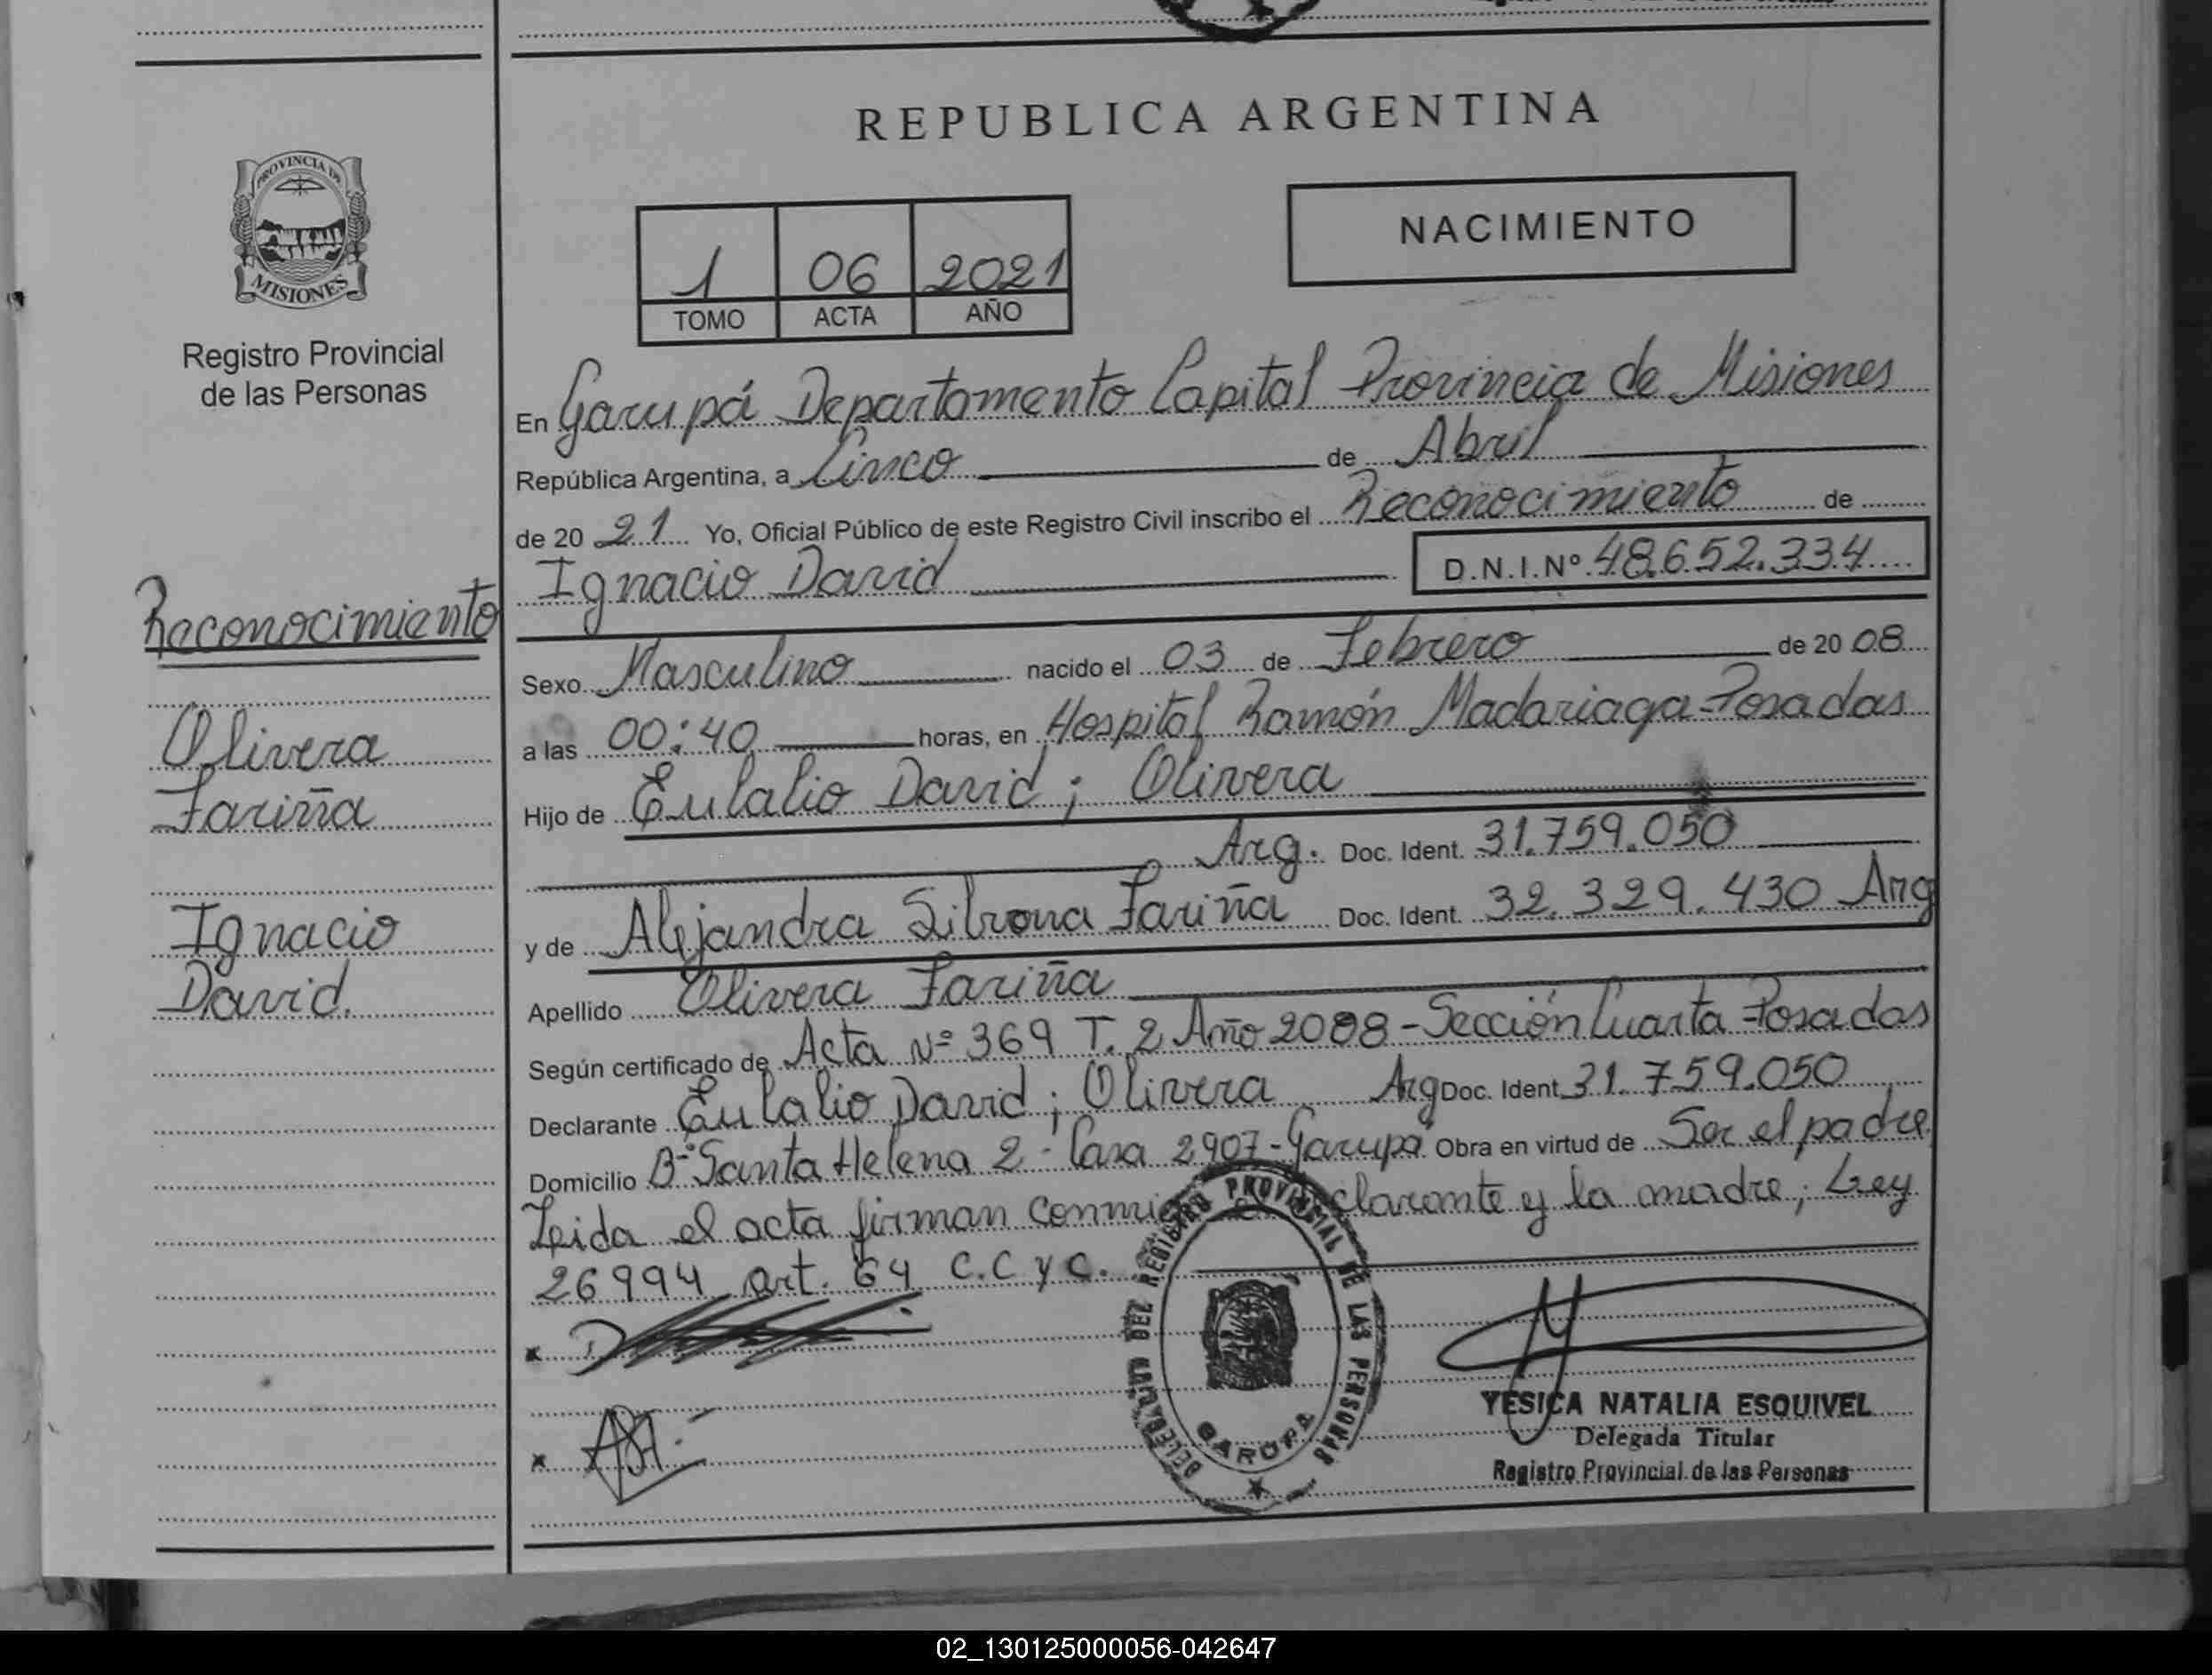 REPUBLICA ARGENTINA
PROVINCIA DE
MISIONES
Registro Provincial
de las Personas
NACIMIENTO
1 06 2021
TOMO ACTA AÑO
En Garupá Departamento Capital Provincia de Misiones
República Argentina, a Cinco de Abril
de 20 21 Yo, Oficial Público de este Registro Civil inscribo el Reconocimiento de
Ignacio David D.N.I.Nº 48.652.334
Sexo Masculino nacido el 03 de Febrero de 20 08
a las 00:40 horas, en Hospital Ramón Madariaga-Posadas
Hijo de Eulalio David; Olivera
Arg. Doc. Ident. 31.759.050
y de Alejandra Fariña Doc. Ident. 32.329.430 Arg
Apellido Olivera Fariña
Según certificado de Acta Nº 369 T. 2 Año 2008-Sección Cuarta Posadas
Declarante Eulalio David; Olivera Arg Doc. Ident. 31.759.050
Domicilio Bº Santa Helena 2 - Casa 2907-Garupá Obra en virtud de Ser el padre
Leida el acta firman y la madre; Ley
26994 art. 64 C.C y C.
Reconocimiento
Olivera
Fariña
Ignacio
David.
x
x
DELEGACION DEL REGISTRO PROVINCIAL DE LAS PERSONAS
GARUPA
YESICA NATALIA ESQUIVEL
Delegada Titular
Registro Provincial de las Personas
02_130125000056-042647